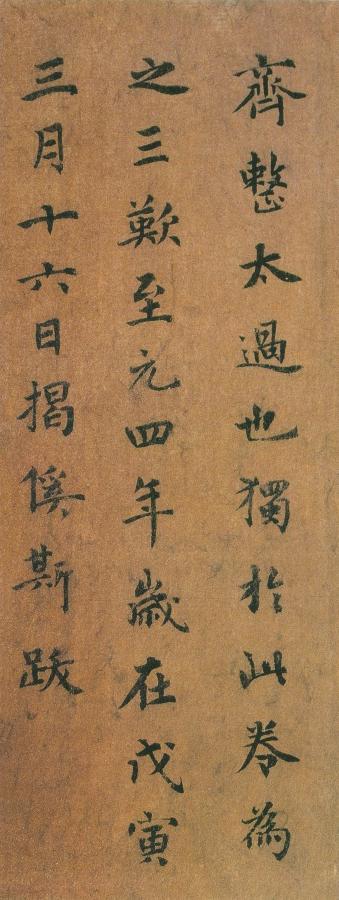 齊整太過也獨於此卷為
之三歎至元四年歲在戊寅
三月十六日揭傒斯跋